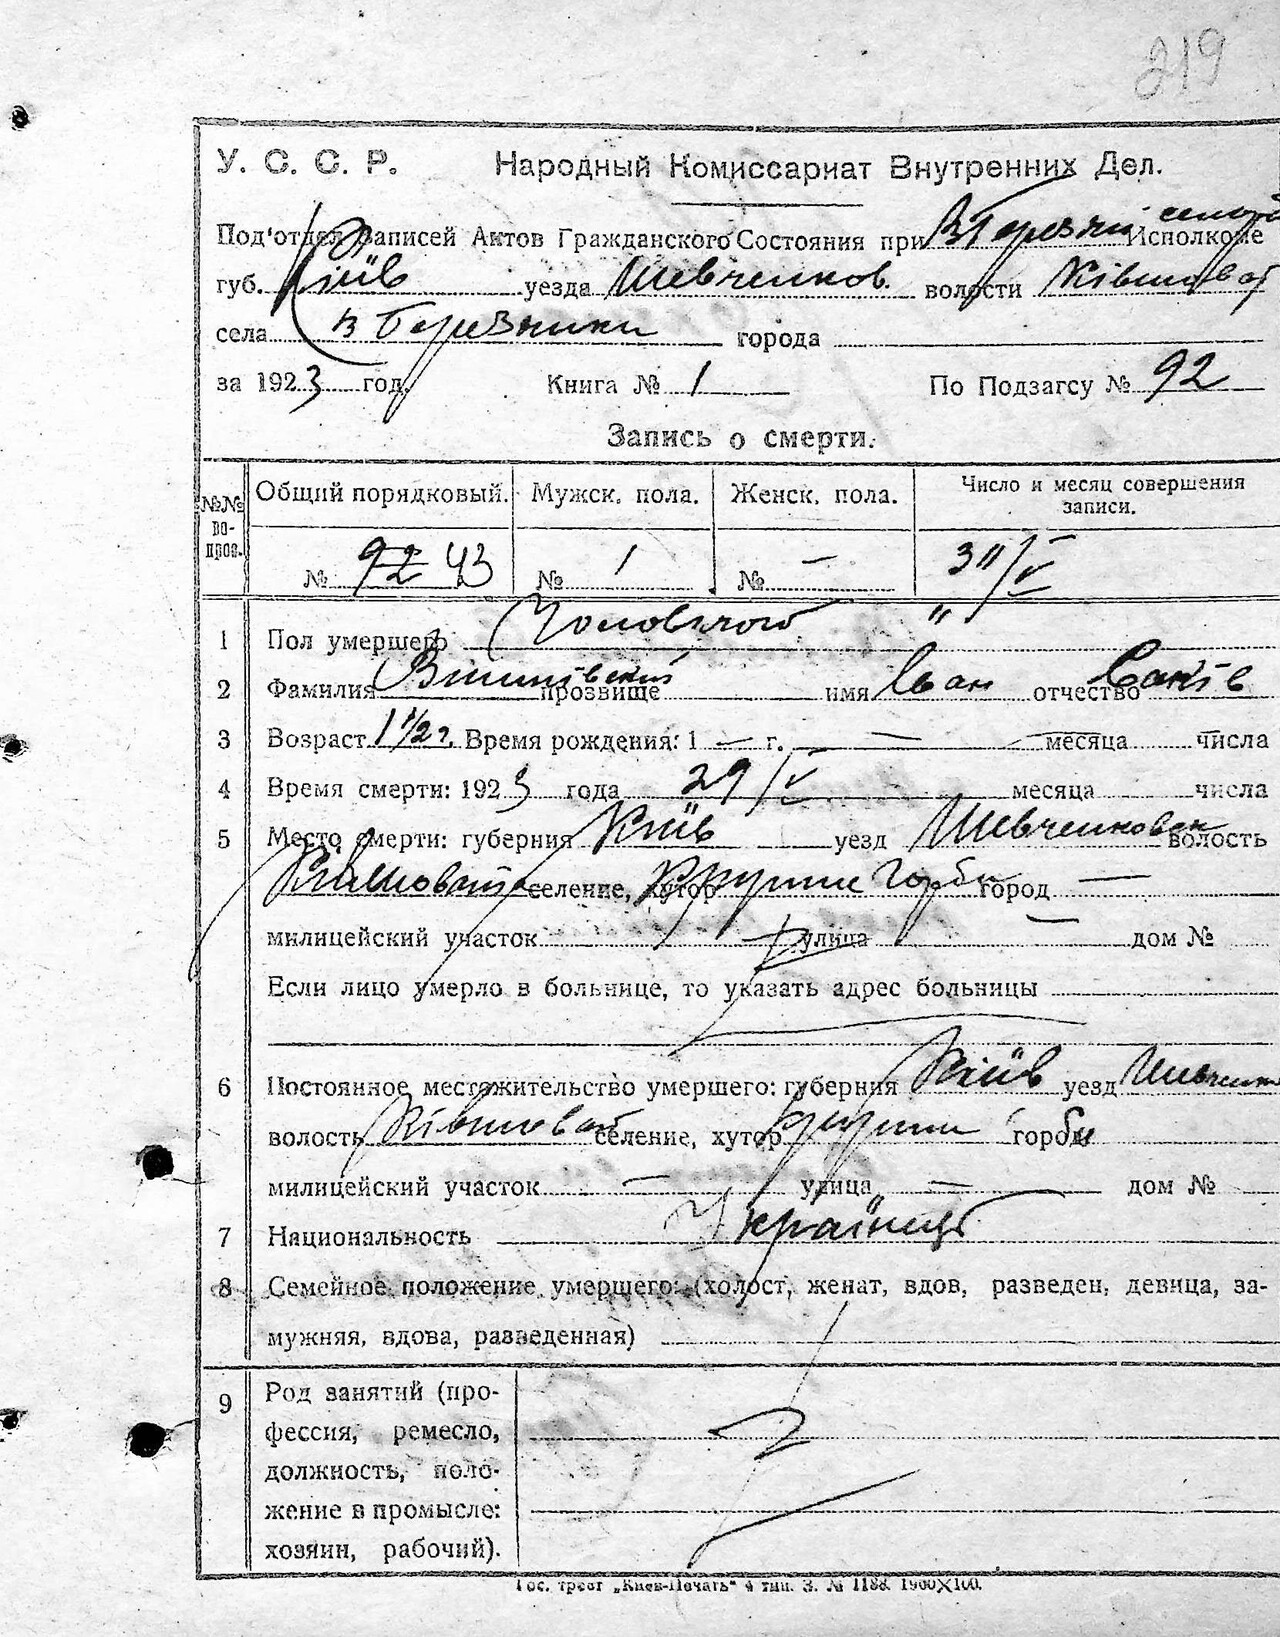 219
У. С. С. Р. Народный Комиссариат Внутренних Дел.
Под'отдел Записей Актов Гражданского Состояния при Исполкоме
губ. Київ уезда Шевченков. волости Ківшоват
села В Березянки города
за 1923 год. Книга № 1 По Подзагсу № 92
Запись о смерти.
№№ вопров. Общий порядковый. Мужск. пола. Женск. пола. Число и месяц совершения записи.
№ 92 43 № 1 № — 3"/V
1 Пол умершего Чоловічого "
2 Фамилия прозвище имя Іван отчество
3 Возраст 1 1/2 г. Время рождения: 1 — г. — месяца числа
4 Время смерти: 1923 года 29/V месяца числа
5 Место смерти: губерния Київ уезд Шевченковск волость
Ківшоват селение, хутор Круті Горби город —
милицейский участок — улица — дом №
Если лицо умерло в больнице, то указать адрес больницы
6 Постоянное местожительство умершего: губерния Київ уезд Шевченк
волость Ківшоват селение, хутор Круті горби
милицейский участок — улица — дом №
7 Национальность Українець
8 Семейное положение умершего: (холост, женат, вдов, разведен, девица, за-
мужняя, вдова, разведенная)
9 Род занятий (про-
фессия, ремесло,
должность, поло-
жение в промысле:
хозяин, рабочий).
Гос. трест „Киев-Печать" 4 тип. З. № 1188. 1900×100.